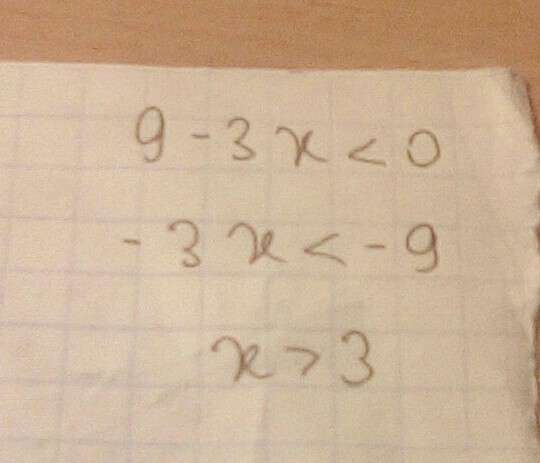 9 - 3x < 0
- 3x < - 9
x > 3